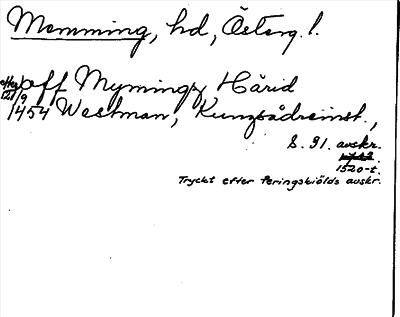 Memming, hd, Österg. l.
aff Mymings Härid
efter 12/9 1454 Westman, Kungsådreinst.,
S. 91. avskr.
1520-t.
Tryckt efter Peringskiölds avskr.